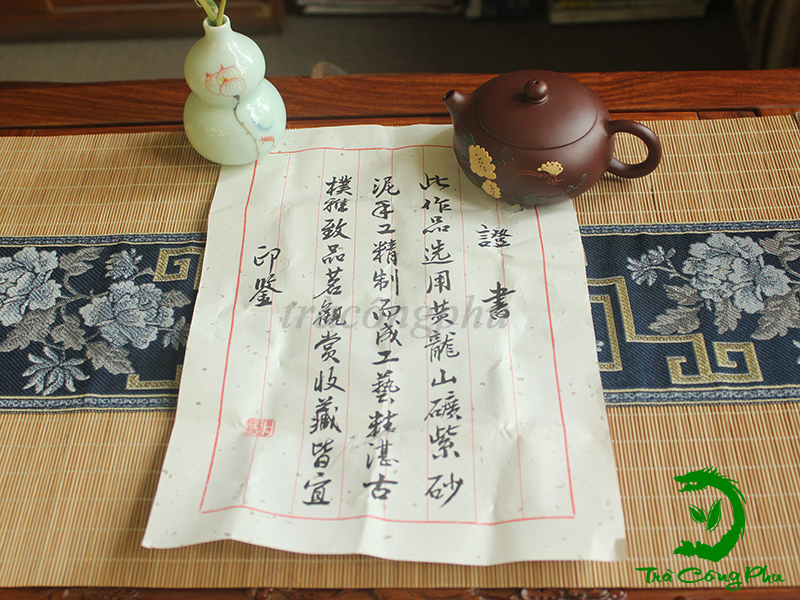 證書
此作品选用黄龍山礦紫砂
泥手工精制而成工藝精湛古
樸雅致品茗觀赏收藏皆宜
印鑒
tracôngphu
Trà Công Phu